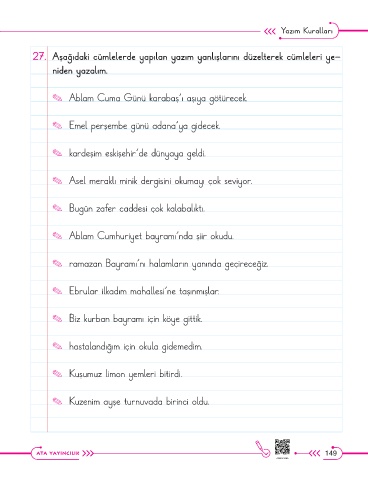 Yazım Kuralları
27. Aşağıdaki cümlelerde yapılan yazım yanlışlarını düzelterek cümleleri ye-
niden yazalım.
Ablam Cuma Günü karabaş'ı aşıya götürecek.
Emel perşembe günü adana'ya gidecek.
kardeşim eskişehir'de dünyaya geldi.
Asel meraklı minik dergisini okumayı çok seviyor.
Bugün zafer caddesi çok kalabalıktı.
Ablam Cumhuriyet bayramı'nda şiir okudu.
ramazan Bayramı'nı halamların yanında geçireceğiz.
Ebrular ilkadım mahallesi'ne taşınmışlar.
Biz kurban bayramı için köye gittik.
hastalandığım için okula gidemedim.
Kuşumuz limon yemleri bitirdi.
Kuzenim ayşe turnuvada birinci oldu.
ATA YAYINCILIK
149